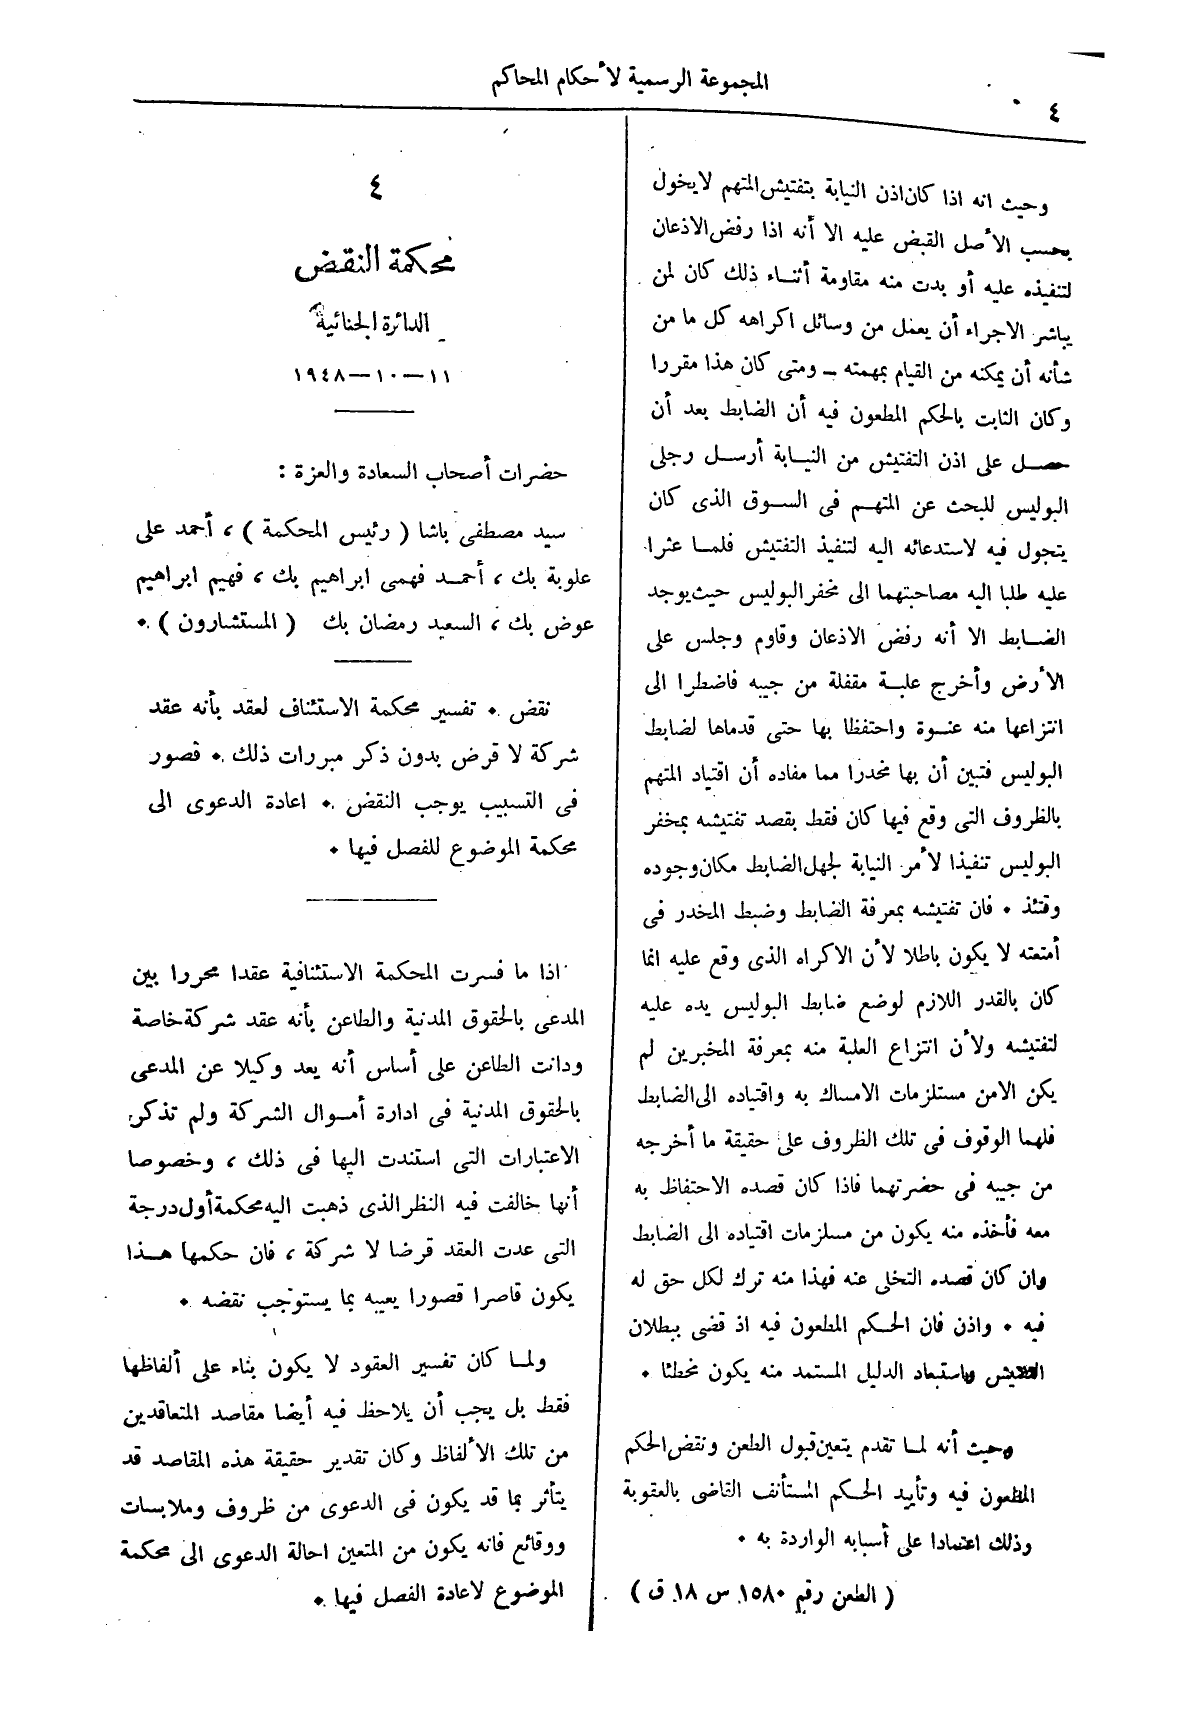 المجموعة الرسمية لأحكام المحاكم
٤
وحيث انه اذا كان اذن النيابة بتفتيش المتهم لا يخول
بحسب الأصل القبض عليه الا أنه اذا رفض الاذعان
لتنفيذه عليه أو بدت منه مقاومة أثناء ذلك كان لمن
يباشر الاجراء أن يعمل من وسائل اكراهه كل ما من
شأنه أن يمكنه من القيام بمهمته ـ ومتى كان هذا مقررا
وكان الثابت بالحكم المطعون فيه أن الضابط بعد أن
حصل على اذن التفتيش من النيابة أرسل رجلى
البوليس للبحث عن المتهم فى السوق الذى كان
يتجول فيه لاستدعائه اليه لتنفيذ التفتيش فلما عثرا
عليه طلبا اليه مصاحبتهما الى مخفر البوليس حيث يوجد
الضابط الا أنه رفض الاذعان وقاوم وجلس على
الأرض وأخرج علبة مقفلة من جيبه فاضطرا الى
انتزاعها منه عنوة واحتفظا بها حتى قدماها لضابط
البوليس فتبين أن بها مخدرا مما مفاده أن اقتياد المتهم
بالظروف التى وقع فيها كان فقط بقصد تفتيشه بمخفر
البوليس تنفيذا لأمر النيابة لجهل الضابط مكان وجوده
وقتئذ . فان تفتيشه بمعرفة الضابط وضبط المخدر فى
أمتعته لا يكون باطلا لأن الاكراه الذى وقع عليه انما
كان بالقدر اللازم لوضع ضابط البوليس يده عليه
لتفتيشه ولأن انتزاع العلبة منه بمعرفة المخبرين لم
يكن الا من مستلزمات الامساك به واقتياده الى الضابط
فلهما الوقوف فى تلك الظروف على حقيقة ما أخرجه
من جيبه فى حضرتهما فاذا كان قصده الاحتفاظ به
معه فأخذه منه يكون من مسلزمات اقتياده الى الضابط
وان كان قصده التخلى عنه فهذا منه ترك لكل حق له
فيه . واذن فان الحكم المطعون فيه اذ قضى ببطلان
التفتيش وباستبعاد الدليل المستمد منه يكون مخطئا .
وحيث أنه لما تقدم يتعين قبول الطعن ونقض الحكم
المطعون فيه وتأييد الحكم المستأنف القاضى بالعقوبة
وذلك اعتمادا على أسبابه الواردة به .
( الطعن رقم ١٥٨٠ س ١٨ ق )
٤
محكمة النقض
الدائرة الجنائية
١١ـ١٠ـ١٩٤٨
حضرات أصحاب السعادة والعزة :
سيد مصطفى باشا ( رئيس المحكمة ) ، أحمد على
علوبة بك ، أحمد فهمى ابراهيم بك ، فهيم ابراهيم
عوض بك ، السعيد رمضان بك ( المستشارون ) .
نقض . تفسير محكمة الاستئناف لعقد بأنه عقد
شركة لا قرض بدون ذكر مبررات ذلك . قصور
فى التسبيب يوجب النقض . اعادة الدعوى الى
محكمة الموضوع للفصل فيها .
اذا ما فسرت المحكمة الاستئنافية عقدا محررا بين
المدعى بالحقوق المدنية والطاعن بأنه عقد شركة خاصة
ودانت الطاعن على أساس أنه يعد وكيلا عن المدعى
بالحقوق المدنية فى ادارة أموال الشركة ولم تذكر
الاعتبارات التى استندت اليها فى ذلك ، وخصوصا
أنها خالفت فيه النظر الذى ذهبت اليه محكمة أول درجة
التى عدت العقد قرضا لا شركة ، فان حكمها هذا
يكون قاصرا قصورا يعيبه بما يستوجب نقضه .
ولما كان تفسير العقود لا يكون بناء على ألفاظها
فقط بل يجب أن يلاحظ فيه أيضا مقاصد المتعاقدين
من تلك الألفاظ وكان تقدير حقيقة هذه المقاصد قد
يتأثر بما قد يكون فى الدعوى من ظروف وملابسات
ووقائع فانه يكون من المتعين احالة الدعوى الى محكمة
الموضوع لاعادة الفصل فيها .